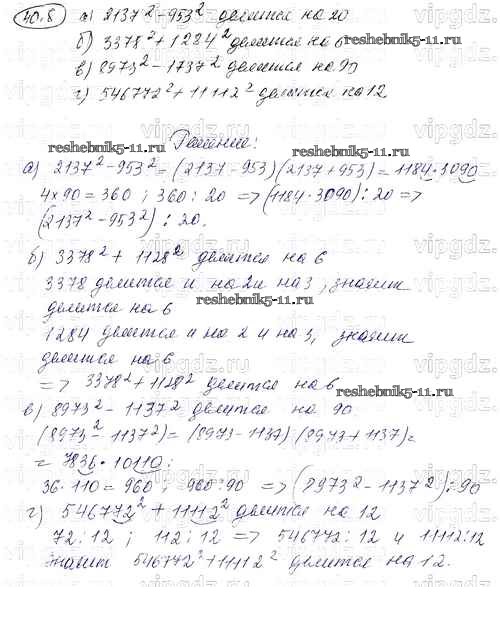 40.8 а) 2137² - 953² делится на 20
б) 3378² + 1284² делится на 6
в) 8973² - 1737² делится на 90
г) 546772² + 11112² делится на 12
Решение:
reshebnik5-11.ru
а) 2137² - 953² = (2137 - 953)(2137 + 953) = 1184 · 3090
4 × 90 = 360 ; 360 : 20 => (1184 · 3090) ⋮ 20 =>
(2137² - 953²) ⋮ 20.
б) 3378² + 1128² делится на 6
3378 делится и на 2 и на 3, значит
делится на 6
reshebnik5-11.ru
1284 делится и на 2 и на 3, значит
делится на 6
=> 3378² + 1128² делится на 6
reshebnik5-11.ru
в) 8973² - 1137² делится на 90.
(8973² - 1137²) = (8973 - 1137) · (8973 + 1137) =
= 7836 · 10110 ;
36 · 110 = 960 ; 960 : 90 => (8973² - 1137²) ⋮ 90
г) 546772² + 11112² делится на 12
72 : 12 ; 112 : 12 => 546772 : 12 и 11112 : 12
значит 546772² + 11112² делится на 12.